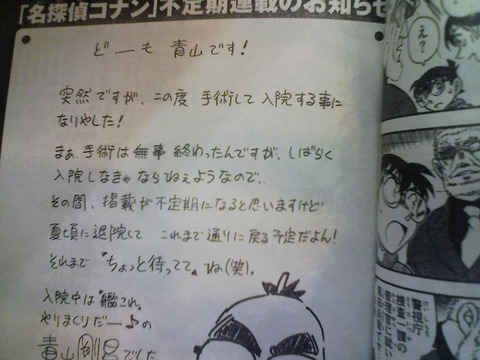 「名探偵コナン」不定期連載のお知らせ
どーも 青山です!
突然ですが、この度 手術して 入院する事に
なりやした!
まぁ、手術は 無事 終わったんですが、しばらく
入院しなきゃ ならねぇようなので、
その間、掲載が 不定期になると思いますけど
夏頃に退院して これまで通りに 戻る予定だよん!
それまで "ちょっと待ってて" ね(笑)。
入院中は "艦これ"
やりまくりだー♪の
青山剛昌でした
え?
警視庁
捜査一課の
管理官に疑い